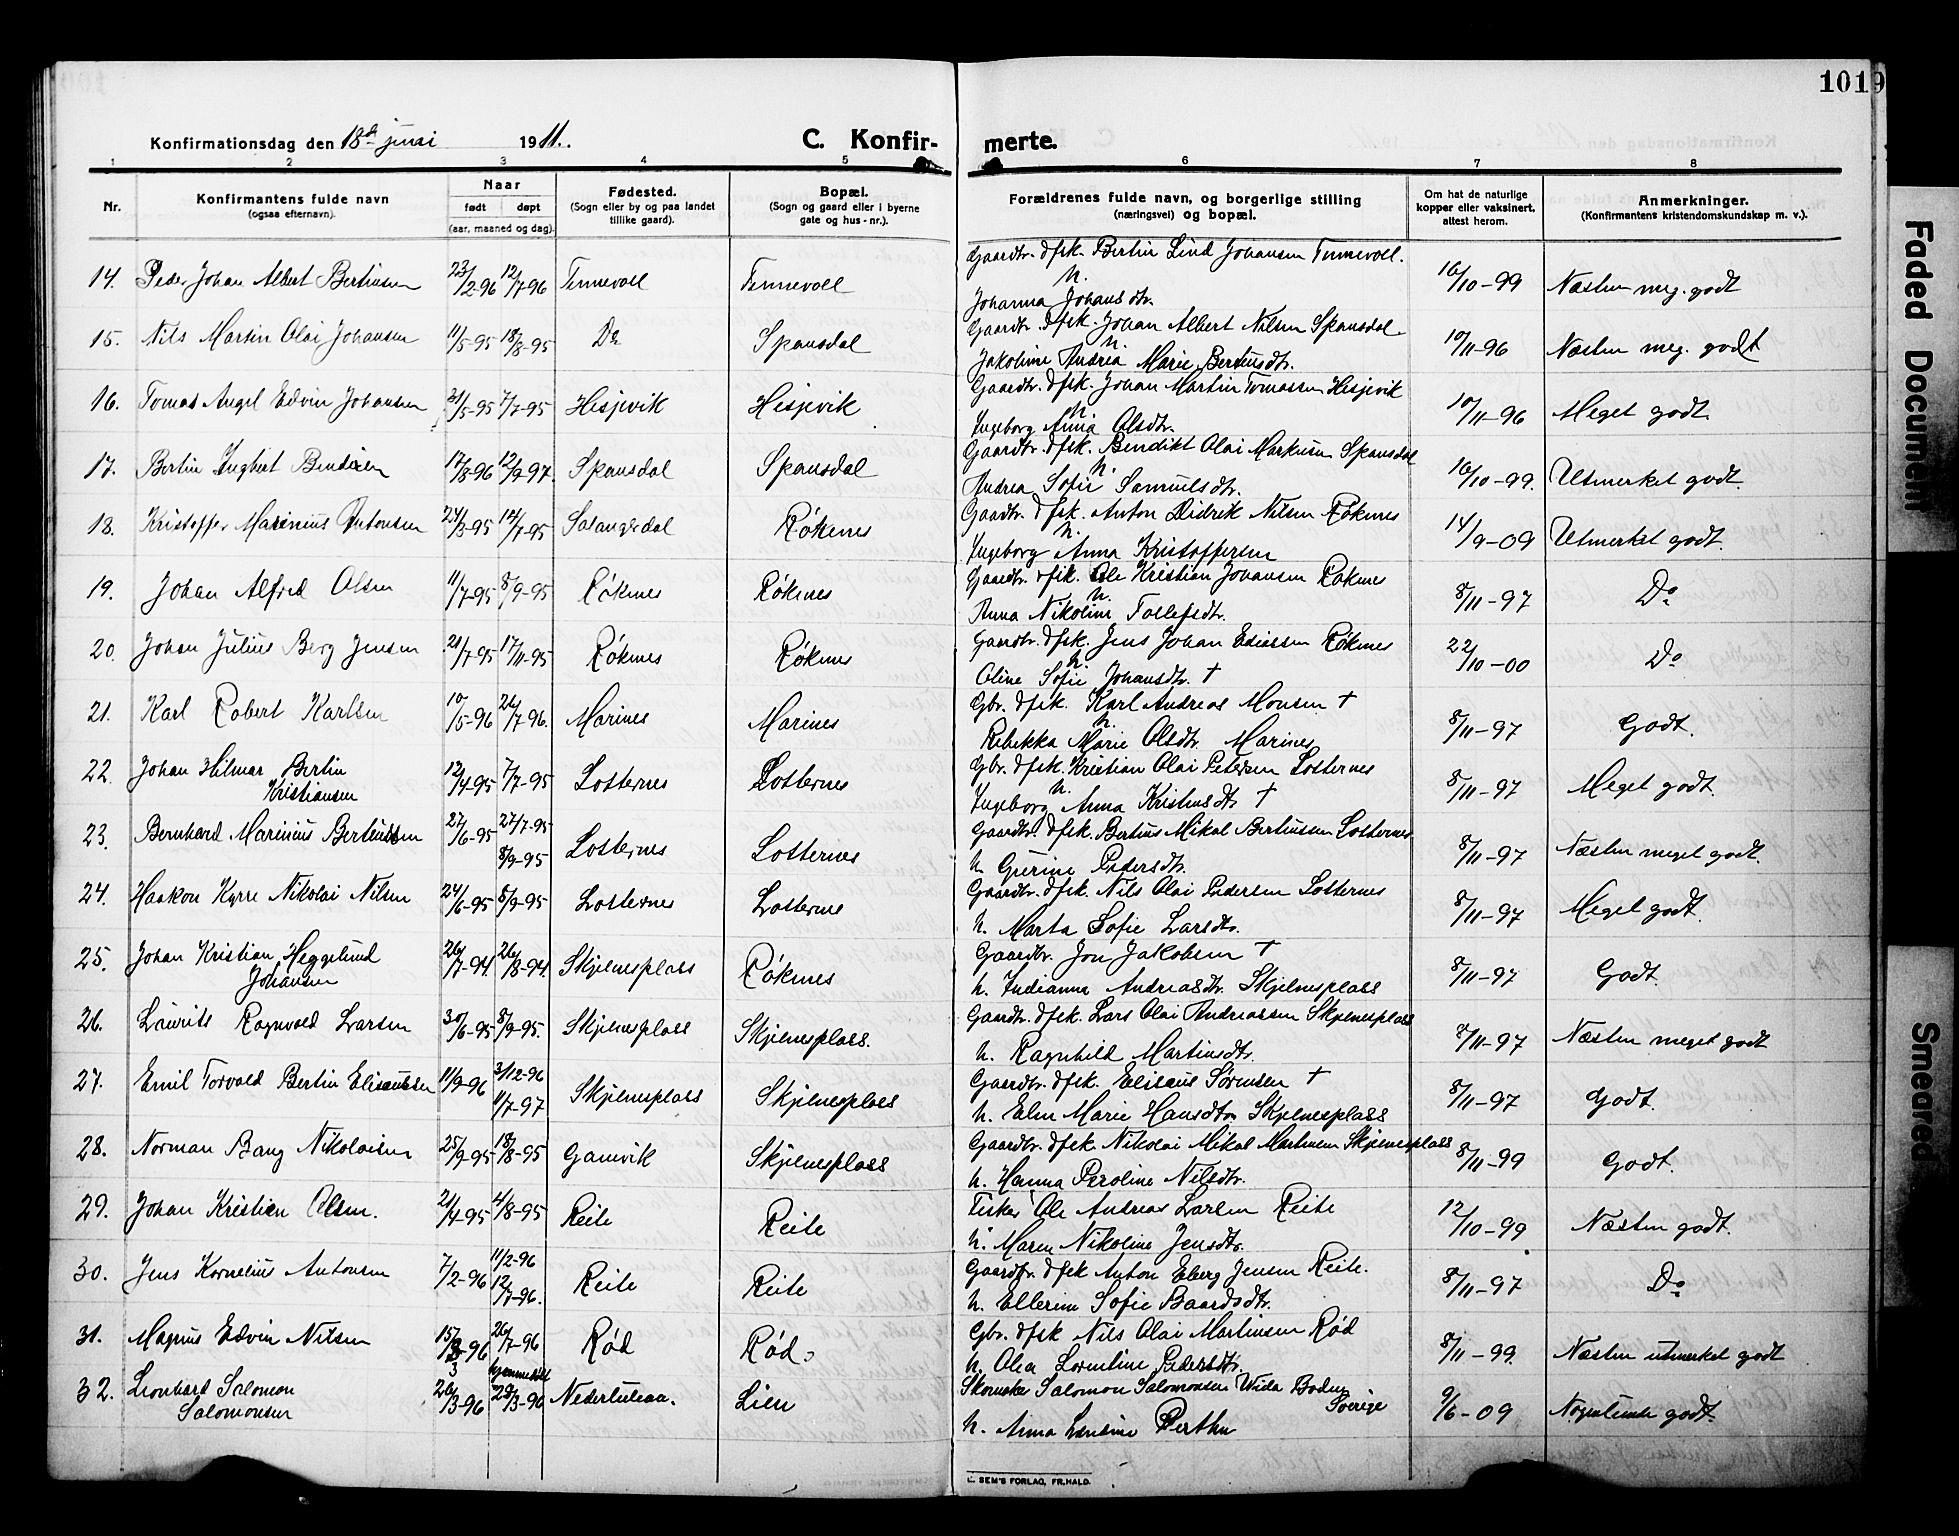 1019
Konfirmationsdag den 18de juni 1911.
C. Konfirmerte.
1 2 3 4 5 6 7 8
Nr.
Konfirmantens fulde navn
(ogsaa efternavn).
Naar
født døpt
(aar, maaned og dag).
Fødested.
(Sogn eller by og paa landet
tillike gaard).
Bopæl.
(Sogn og gaard eller i byerne
gate og hus-nr.).
Forældrenes fulde navn, og borgerlige stilling
(næringsvei) og bopæl.
Om hat de naturlige
kopper eller vaksinert,
attest herom.
Anmerkninger.
(Konfirmantens kristendomskundskap m. v.).
14. Peder Johan Albert Bertinsen 23/2-96 12/7-96 Tennevoll Tennevoll Gaardbr. & fisk. Bertin Lind Johansen Tennevoll.
h. Johanna Johansdtr. 16/10-99 Næsten meg. godt
15. Nils Martin Olai Johansen 11/5-95 18/8-95 Do Spansdal Gaardbr. & fisk. Johan Albert Nilsen Spansdal
h. Jakobine Andrea Marie Berteusdtr. 10/11-96 Næsten meg. godt
16. Tomas Angel Edvin Johansen 31/5-95 7/7-95 Hesjevik Hesjevik Gaardbr. & fisk. Johan Martin Tomassen Hesjevik
h. Ingeborg Anna Olsdtr. 10/11-96 Meget godt
17. Bertin Ingbert Bendiksen 17/8-96 12/9-97 Spansdal Spansdal Gaardbr. & fisk. Bendikt Olai Markusen Spansdal
h. Andrea Sofie Samuelsdtr. 16/10-99. Utmerket godt.
18. Kristoffer Marinius Antonsen 24/3-95 14/7-95 Salangsdal Røkenes Gaardbr. & fisk. Anton Didrik Nilsen Røkenes
h. Ingeborg Anna Kristoffersen 14/9-09 Utmerket godt.
19. Johan Alfred Olsen 11/7-95 8/9-95 Røkenes Røkenes Gaardbr. & fisk. Ole Kristian Johansen Røkenes
h. Anna Nikoline Tollefsdtr. 8/11-97 Do
20. Johan Julius Berg Jensen 21/7-95 17/11-95 Røkenes Røkenes Gaardbr. & fisk. Jens Johan Eliassen Røkenes
h. Oline Sofie Johansdtr. † 22/10-00 Do
21. Karl Robert Karlsen 10/5-96 26/7-96. Marines Marines Gbr. & fisk. Karl Andreas Monsen †
h. Rebekka Marie Olsdtr. Marines 8/11-97 Godt.
22. Johan Hilmar Bertin
Kristiansen 12/4-95 7/7-95 Lotternes Lotternes Gbr. & fisk. Kristian Olai Petersen Lotternes
h. Ingeborg Anna Kristensdtr. † 8/11-97 Meget godt.
23. Bernhard Marinius Berteussen 27/6-95 27/7-95
8/9-95 Lotternes Lotternes Gaardbr. & fisk. Berteus Mikal Berteussen Lotternes.
h. Gurine Pedersdtr. 8/11-97 Næsten meget godt.
24. Haakon Kyrre Nikolai Nilsen 24/6-95 8/9-95 Lotternes Lotternes Gaardbr. & fisk. Nils Olai Pedersen Lotternes
h. Marta Sofie Larsdtr. 8/11-97 Meget godt.
25. Johan Kristian Heggelund
Johansen 26/7-94 26/8-94. Skjelnesplass Røkenes Gaardbr. Jon Jakobsen †
h. Indianna Andreasdtr. Skjelnesplass 8/11-97 Godt.
26. Laurits Ragnvald Larsen 30/6-95 8/9-95. Skjelnesplass Skjelnesplass. Gaardbr. & fisk. Lars Olai Andreassen Skjelnesplass
h. Ragnhild Martinsdtr. 8/11-97 Næsten meget godt
27. Emil Torvald Bertin Eliseussen 11/9-96 3/12-96
11/7-97 Skjelnesplass Skjelnesplass Gaardbr. & fisk. Eliseus Sørensen †
h. Elen Marie Hansdtr Skjelnesplass 8/11-97 Godt.
28. Norman Bang Nikolaisen 25/9-95 18/8-95 Gamvik Skjelnesplass Gaardbr. & fisk. Nikolai Mikal Martinsen Skjelnesplass
h. Hanna Peroline Nilsdtr. 8/11-99 Godt.
29. Johan Kristian Olsen. 21/4-95 4/8-95 Reite Reite Fisker Ole Andreas Larsen Reite
h. Maren Nikoline Jensdtr. 12/10-99 Næsten godt.
30. Jens Kornelius Antonsen 7/2-96 11/2-96
12/7-96. Reite Reite Gaardbr. & fisk Anton Eberg Jensen Reite.
h. Ellerine Sofie Baardsdtr. 8/11-97 Do
31. Magnus Edvin Nilsen 15/3-96 26/7-96 Rød Rød Gbr. & fisk Nils Olai Martinsen Rød
h. Olea Lorentine Pedersdtr. 8/11-99. Næsten utmerket godt
32. Leonhard Salomon
Salomonsen 26/3-96 hjemmedøbt 29/3-96 Nederluleaa. Lien Skomaker Salomon Salomonsen Wida Boden
Sverige
h. Anna Lovisine Perthu 9/6-09 Nogenlunde godt
E. SEM'S FORLAG, FR.HALD.
Faded Document
Smeared